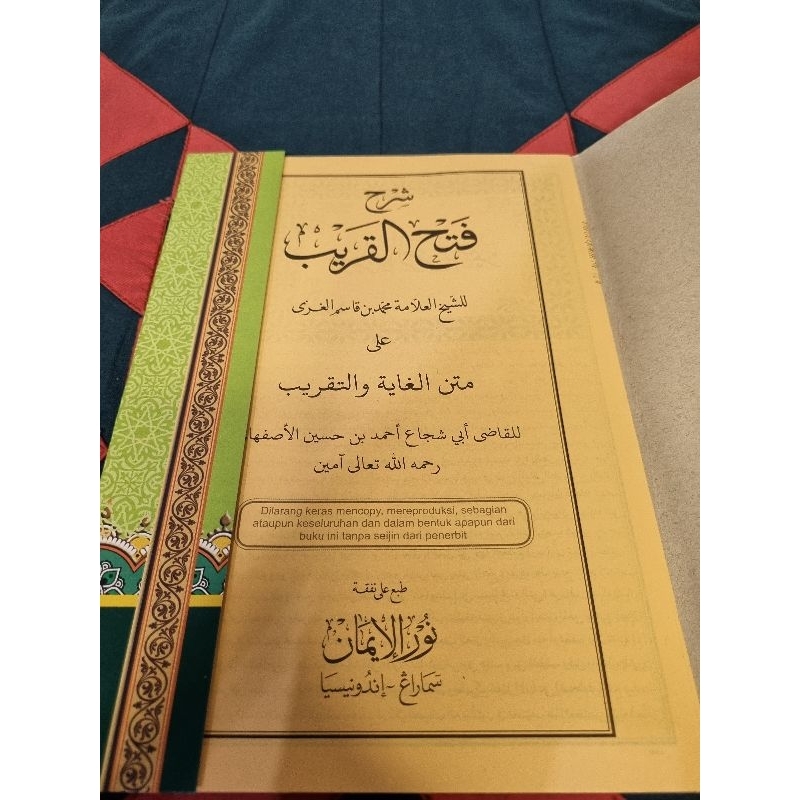 شرح
فَتحُ القَريبْ
للشيخ العلامة محمد بن قاسم الغزى
على
متن الغاية والتقريب
للقاضى أبي شجاع أحمد بن حسين
رحمه الله تعالى آمين
Dilarang keras mencopy, mereproduksi, sebagian
ataupun keseluruhan dan dalam bentuk apapun dari
buku ini tanpa seijin dari penerbit
طبع على نفقة
نُورُ الإيمَانْ
سَمَاراڠ - إندُونيسيَا